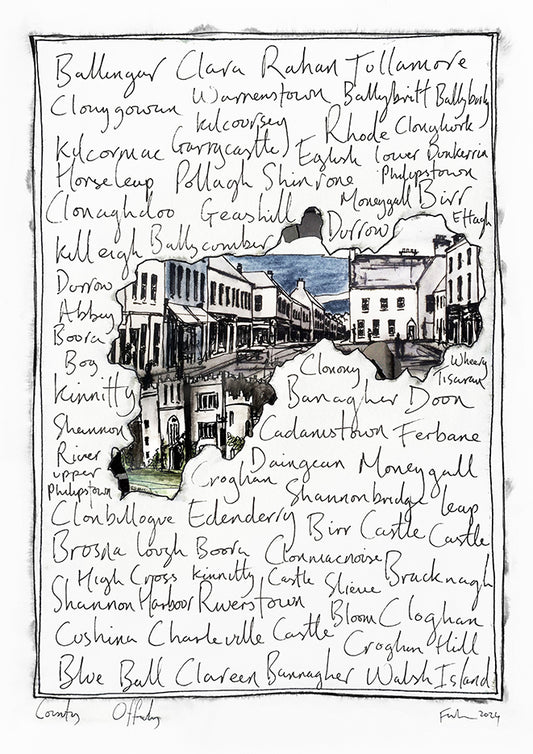 Ballingar Clara Rahan Tullamore
Clonygowan Warrenstown Ballybritt Ballyboy
Kilcoursey Rhode Clonyhork
Kilcormac Garrycastle Eglish Lower Dunkerrin
Horseleap Pollagh Shinrone Philipstown
Clonaghdoo Geashill Moneygall Birr
Killeigh Ballycomber Durrow Ettagh
Durrow
Abbey
Boora
Bog
Kinnitty
Shannon
River
upper
Philipstown
Clonony Wheery
Tisaran
Banagher Doon
Cadamstown Ferbane
Daingean Moneygall
Croghan Shannonbridge Leap
Clonbullogue Edenderry Birr Castle Castle
Brosna Lough Boora Clonmacnoise
High Cross Kinnitty Castle Slieve Bracknagh
Shannon Harbour Riverstown Bloom Cloghan
Cushina Charleville Castle Croghan Hill
Blue Ball Clareen Bannagher Walsh Island
County Offaly 2024